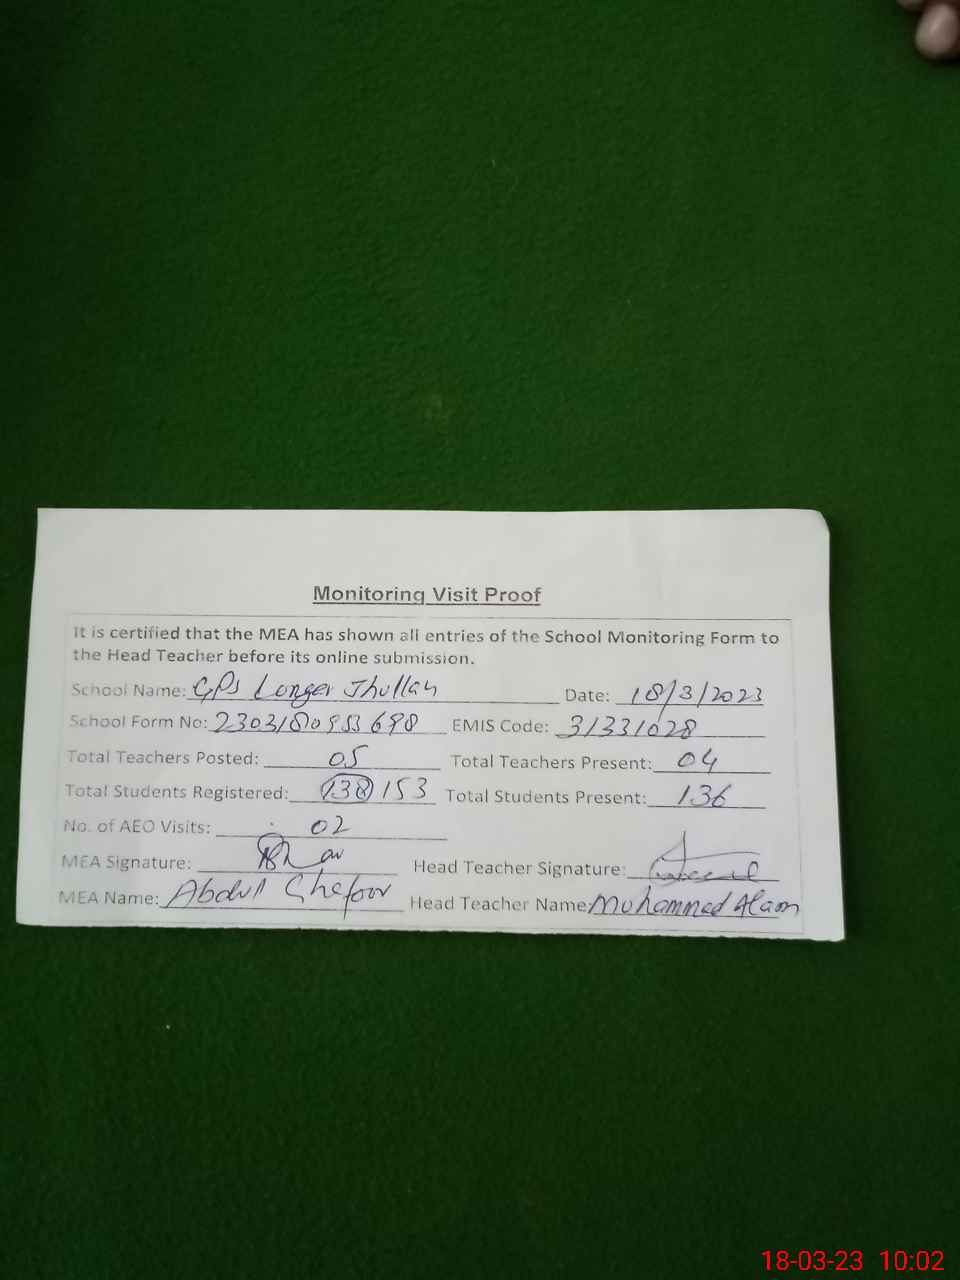 Monitoring Visit Proof
It is certified that the MEA has shown all entries of the School Monitoring Form to
the Head Teacher before its online submission.
School Name: GPS Langer Jhullah Date: 18/3/2023
School Form No: EMIS Code: 31331028
Total Teachers Posted: 05 Total Teachers Present: 04
Total Students Registered: 138 153 Total Students Present: 136
No. of AEO Visits: 02
MEA Signature: Head Teacher Signature:
MEA Name: Abdul Ghafoor Head Teacher Name: Muhammad Alam
18-03-23 10:02